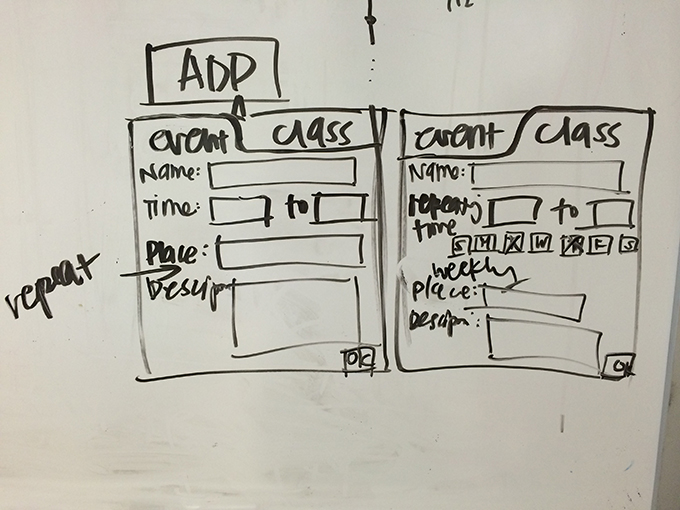 ADD
event class
Name:
Time: to
Place:
repeat
Descrip
OK
event class
Name:
repeating to
time
S M T W TR F S
weekly
Place:
Descrip:
OK